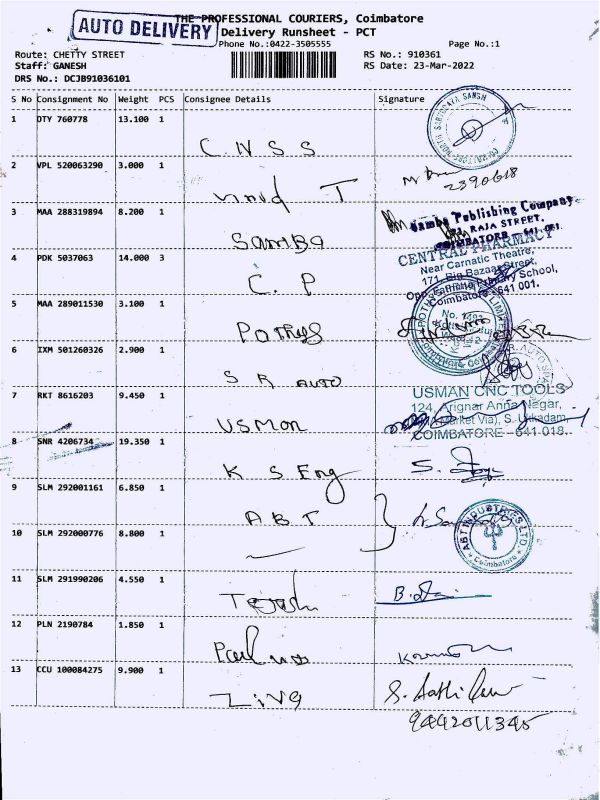 AUTO DELIVERY
THE PROFESSIONAL COURIERS, Coimbatore
Delivery Runsheet - PCT
Phone No.:0422-3505555 Page No.:1
Route: CHETTY STREET RS No.: 910361
Staff: GANESH RS Date: 23-Mar-2022
DRS No.: DCJB91036101
S No Consignment No Weight PCS Consignee Details Signature
1 DTY 760778 13.100 1
C N S S
2 VPL 520063290 3.000 1
vinod T
2390618
3 MAA 288319894 8.200 1
Samba Publishing Company
RAJA STREET,
COIMBATORE - 641 001.
SAMBA
4 PDK 5037063 14.000 3
CENTRAL PHARMACY
Near Carnatic Theatre,
171, Big Bazaar Street,
Opp. Primary School,
Coimbatore - 641 001.
C. P
5 MAA 289011530 3.100 1
Pothys
6 IXM 501260326 2.900 1
S R AUTO
7 RKT 8616203 9.450 1
USMAN CNC TOOLS
124, Arignar Anna Nagar,
(Market Via), S. Ukkadam,
COIMBATORE - 641 018.
USMAN
8 SNR 4206734 19.350 1
K S Eng
9 SLM 292001161 6.850 1
A B T
10 SLM 292000776 8.800 1
ABT INDUSTRIES LTD
Coimbatore
11 SLM 291990206 4.550 1
12 PLN 2190784 1.850 1
13 CCU 100084275 9.900 1
S. Sathi
9442011345